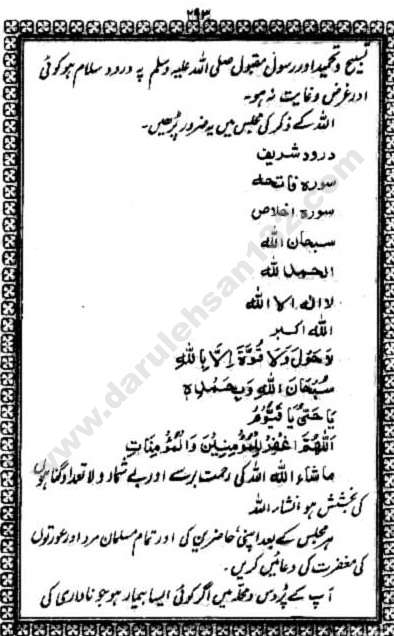 ۲۹۳
تسبیح و تحمید اور رسول مقبول صلی اللہ علیہ وسلم پہ درود سلام ہو کوئی
اور غرض و غایت نہ ہو۔
اللہ کے ذکر کی مجلس میں یہ ضرور پڑھیں۔
درود شریف
سورہ فاتحہ
سورہ اخلاص
سبحان اللہ
الحمد للہ
لا الہ الا اللہ
اللہ اکبر
لَاحَوْلَ وَلَا قُوَّةَ اِلَّا بِاللّٰهِ
سُبْحَانَ اللّٰهِ وَبِحَمْدِهٖ
يَا حَيُّ يَا قَيُّوْمُ
اَللّٰهُمَّ اغْفِرْ لِلْمُؤْمِنِيْنَ وَالْمُؤْمِنَاتِ
ماشاء اللہ اللہ کی رحمت برسے اور بے شمار و لا تعداد گناہوں
کی بخشش ہو انشاء اللہ
ہر مجلس کے بعد اپنی حاضرین کی اور تمام مسلمان مرد اور عورتوں
کی مغفرت کی دعائیں کریں۔
آپ کے پڑوس و محلہ میں اگر کوئی ایسا بیمار ہو جو ناداری کی
www.darulehsan122.com